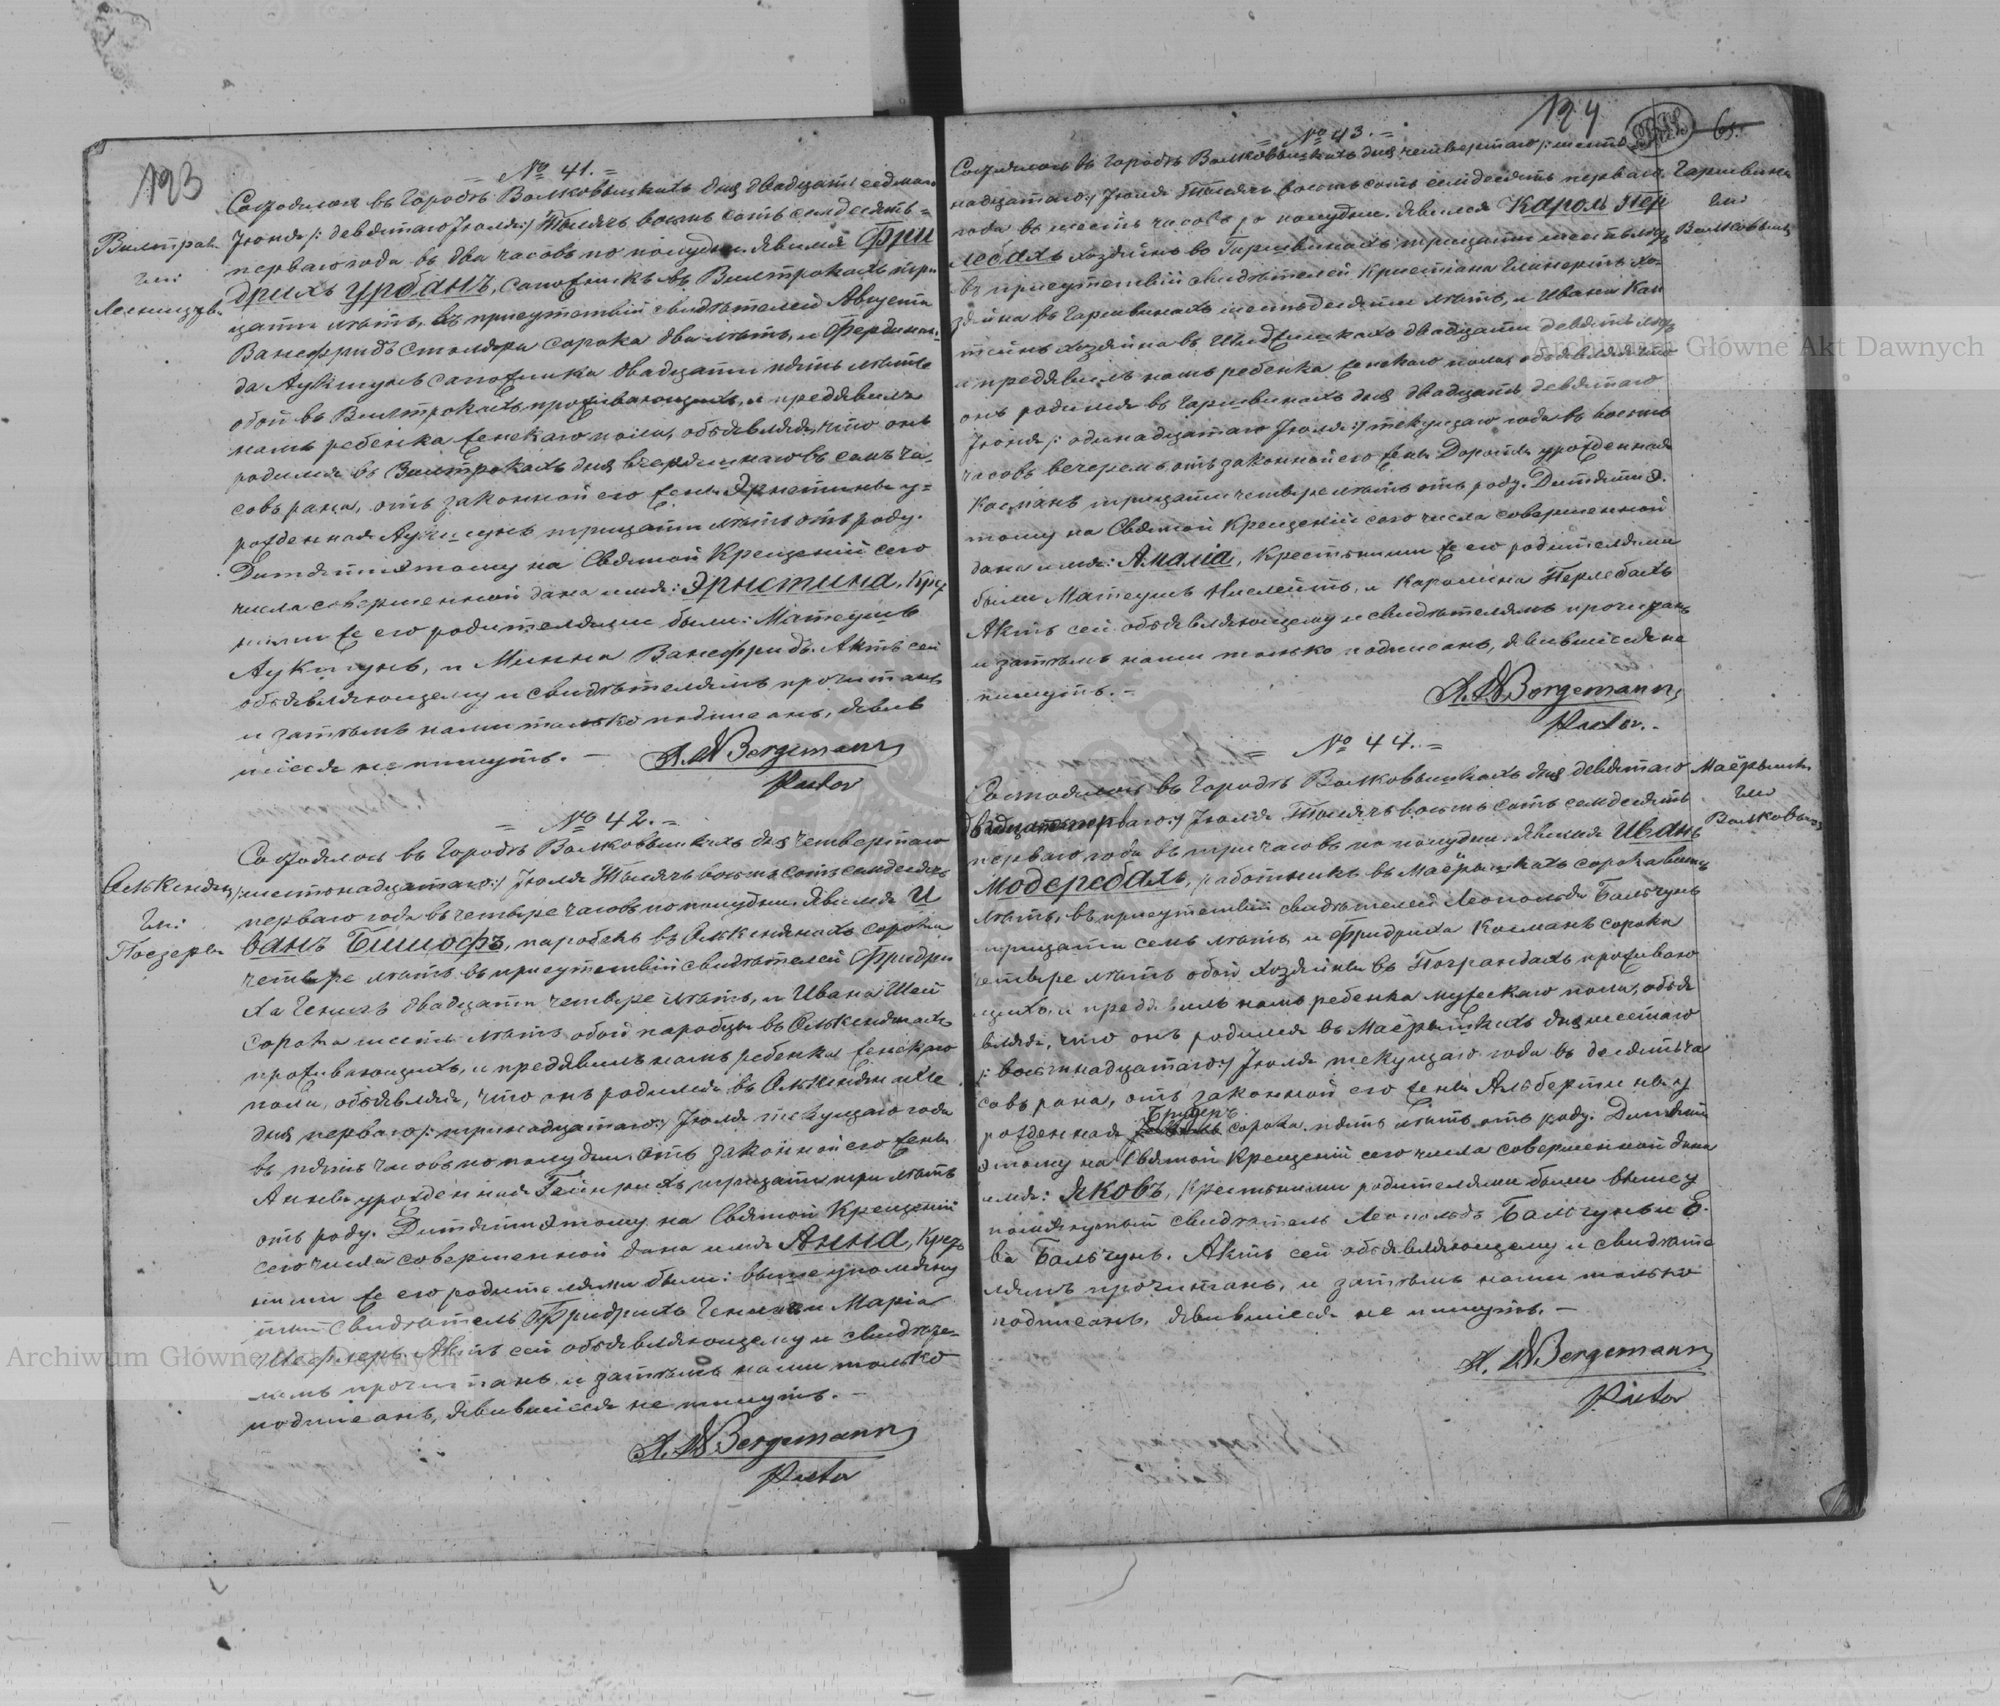 193
№ 41.
Состоялось въ Городѣ Волковышкахъ дня двадцать седмаго
Іюня /: девятаго Іюля :/ Тысяча восемь сотъ семдесять
перваго года въ два часовъ по полудни. Явился Фри
дрихъ Урбанъ, сапожникъ въ Вилтракахъ три
цати лѣтъ, въ присутствіи свидѣтелей Августа
Ванефридъ столяра сорока два лѣтъ, и Фердинан
да Аукштунъ сапожника двадцати пять лѣтъ
обоп въ Вилтракахъ проживающихъ, и предявилъ
намъ ребенка женскаго пола, объявляя, что онъ
родился въ Вилтракахъ дня вчерашнаго въ семь ча
совъ рана, отъ законной его жены Эрнестины у
рожденная Аукштунъ трицати лѣтъ отъ роду.
Дитяти этому на Святой Крещеній сего
числа совершенной дана имя: Эрнстина, Крест
ными же его родителями были: Матеушъ
Аукштунъ, и Минна Ванефридъ. Актъ сей
объявляющему и свидѣтелямъ прочитанъ
и затѣмъ нами только подписанъ, явив
шіеся не пишутъ. —
A. W Bergemann
Pastor
№ 42.
Состоялось въ Городѣ Волковышкахъ дня четвертаго
/: шестонадцатаго :/ Іюля Тысяча восемь сотъ семдесять
перваго года въ четыре часовъ по полудни. Явился И
ванъ Бишофъ, паробекъ въ Олькснянахъ сорока
четыре лѣтъ, въ присутствіи свидѣтелей Фридри
ха Генигъ двадцати четыре лѣтъ, и Ивана Шей
сорока шесть лѣтъ обой паробцы въ Олькснянахъ
проживающихъ, и предявилъ намъ ребенка женскаго
пола, объявляя, что онъ родился въ Олькснянахъ
дня перваго /: тринадцатаго :/ Іюля текущаго года
въ пять часовъ по полудни, отъ законной его жены
Анны урожденная Гейнрихъ трицати три лѣтъ
отъ роду. Дитяти этому на Святой Крещеній
сего числа совершенной дана имя Анна, Крест
ными же его родителями были: вышеупомяну
тый свидѣтель Фридрихъ Генигъ и Марія
Шефлеръ. Актъ сей объявляющему и свидѣте
лямъ прочитанъ и затѣмъ нами только
подписанъ, явившіеся не пишутъ. —
A. W Bergemann
Pastor
194
65.
№ 43.
Состоялось въ Городѣ Волковышкахъ дня четвертаго /: шесто
надцатаго :/ Іюля Тысяча восемь сотъ семдесять перваго
года въ шесть часовъ по полудни. Явился Кароль Пер
лебахъ хозяинъ въ Гаршвинахъ трицати шесть лѣтъ
въ присутствіи свидѣтелей Кристіана Гинертъ хо
зяина въ Гаршвинахъ шестьдесяти лѣтъ, и Ивана Кап
тейнъ хозяина въ двадцати девять лѣтъ
и предявилъ намъ ребенка женскаго пола, объявляя что
онъ родился въ Гаршвинахъ дня двадцать девятаго
Іюня /: одинадцатаго Іюля :/ текущаго года въ восемь
часовъ вечеремъ отъ законной его жены Дороты урожденная
Косманъ трицати четыре лѣтъ отъ роду. Дитяти э
тому на Святой Крещеній сего числа совершенной
дана имя: Амалія, Крестными же его родителями
были Матеушъ и Каролина Перлебахъ
Актъ сей объявляющему и свидѣтелямъ прочитанъ
и затѣмъ нами только подписанъ, явившіеся не
пишутъ. —
A. W Bergemann
Pastor.
№ 44.
Состоялось въ Городѣ Волковышкахъ дня девятаго
двадцать перваго :/ Іюля Тысяча восемь сотъ семдесять
перваго года въ три часовъ по полудни. Явился Иванъ
Модеребахъ, работникъ въ Маёрышкахъ сорока восемь
лѣтъ, въ присутствіи свидѣтелей Леопольда Бальчунъ
трицати семь лѣтъ и Фридриха Косманъ сорока
четыре лѣтъ обой хозяины въ Пограндахъ проживаю
щихъ, и предявилъ намъ ребенка мужескаго пола, объя
вляя, что онъ родился въ Маёрышкахъ дня шестаго
/: восьмнадцатаго :/ Іюля текущаго года въ десять ча
совъ рана, отъ законной его жены Альбертины у
рожденная Бридеръ сорока пять лѣтъ отъ роду. Дитяти
этому на Святой Крещеній сего числа совершенной дана
имя: Яковъ, Крестными родителями были вышеу
помянутый свидѣтель Леопольдъ Бальчунъ и Е
ва Бальчунъ. Актъ сей объявляющему и свидѣте
лямъ прочитанъ, и затѣмъ нами только
подписанъ, явившіеся не пишутъ. —
A. W Bergemann
Pastor
Archiwum Główne Akt Dawnych
Archiwum Główne Akt Dawnych